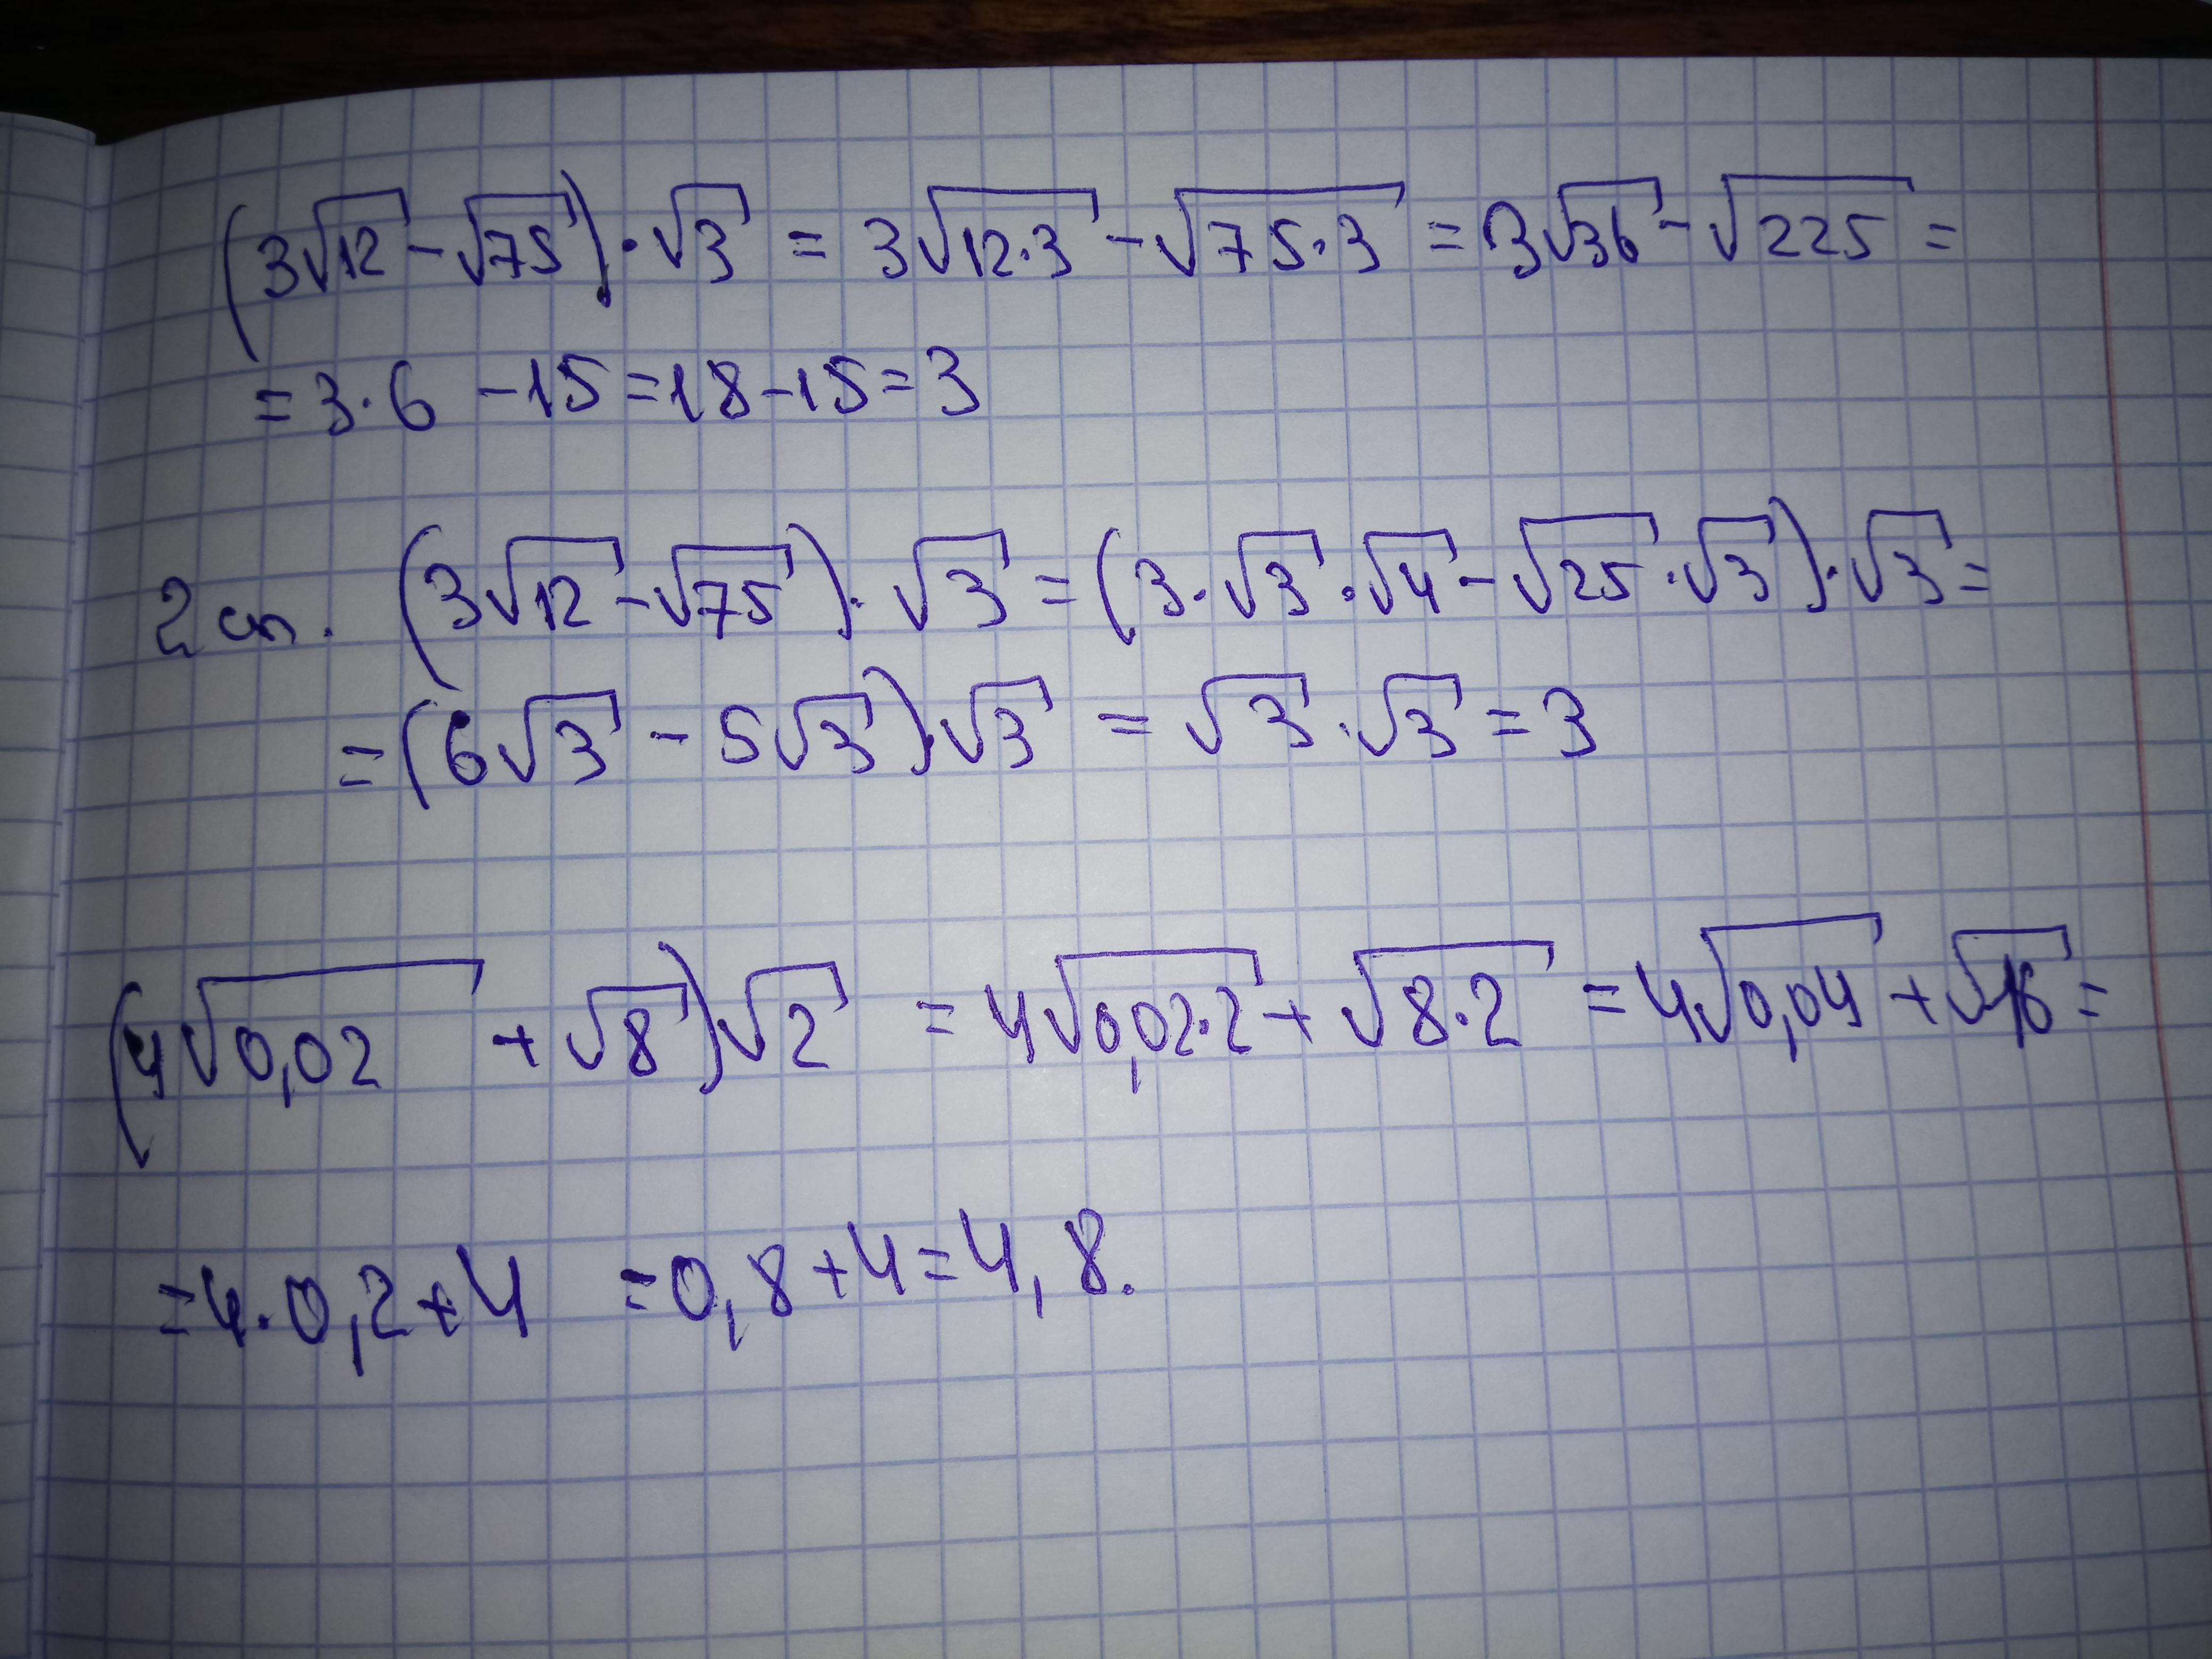 (3√12 - √75) · √3 = 3√12·3 - √75·3 = 3√36 - √225 =
= 3·6 - 15 = 18 - 15 = 3
2 сп. (3√12 - √75) · √3 = (3·√3·√4 - √25·√3)·√3 =
= (6√3 - 5√3)·√3 = √3·√3 = 3
(4√0,02 + √8)√2 = 4√0,02·2 + √8·2 = 4√0,04 + √16 =
= 4·0,2 + 4 = 0,8 + 4 = 4,8.